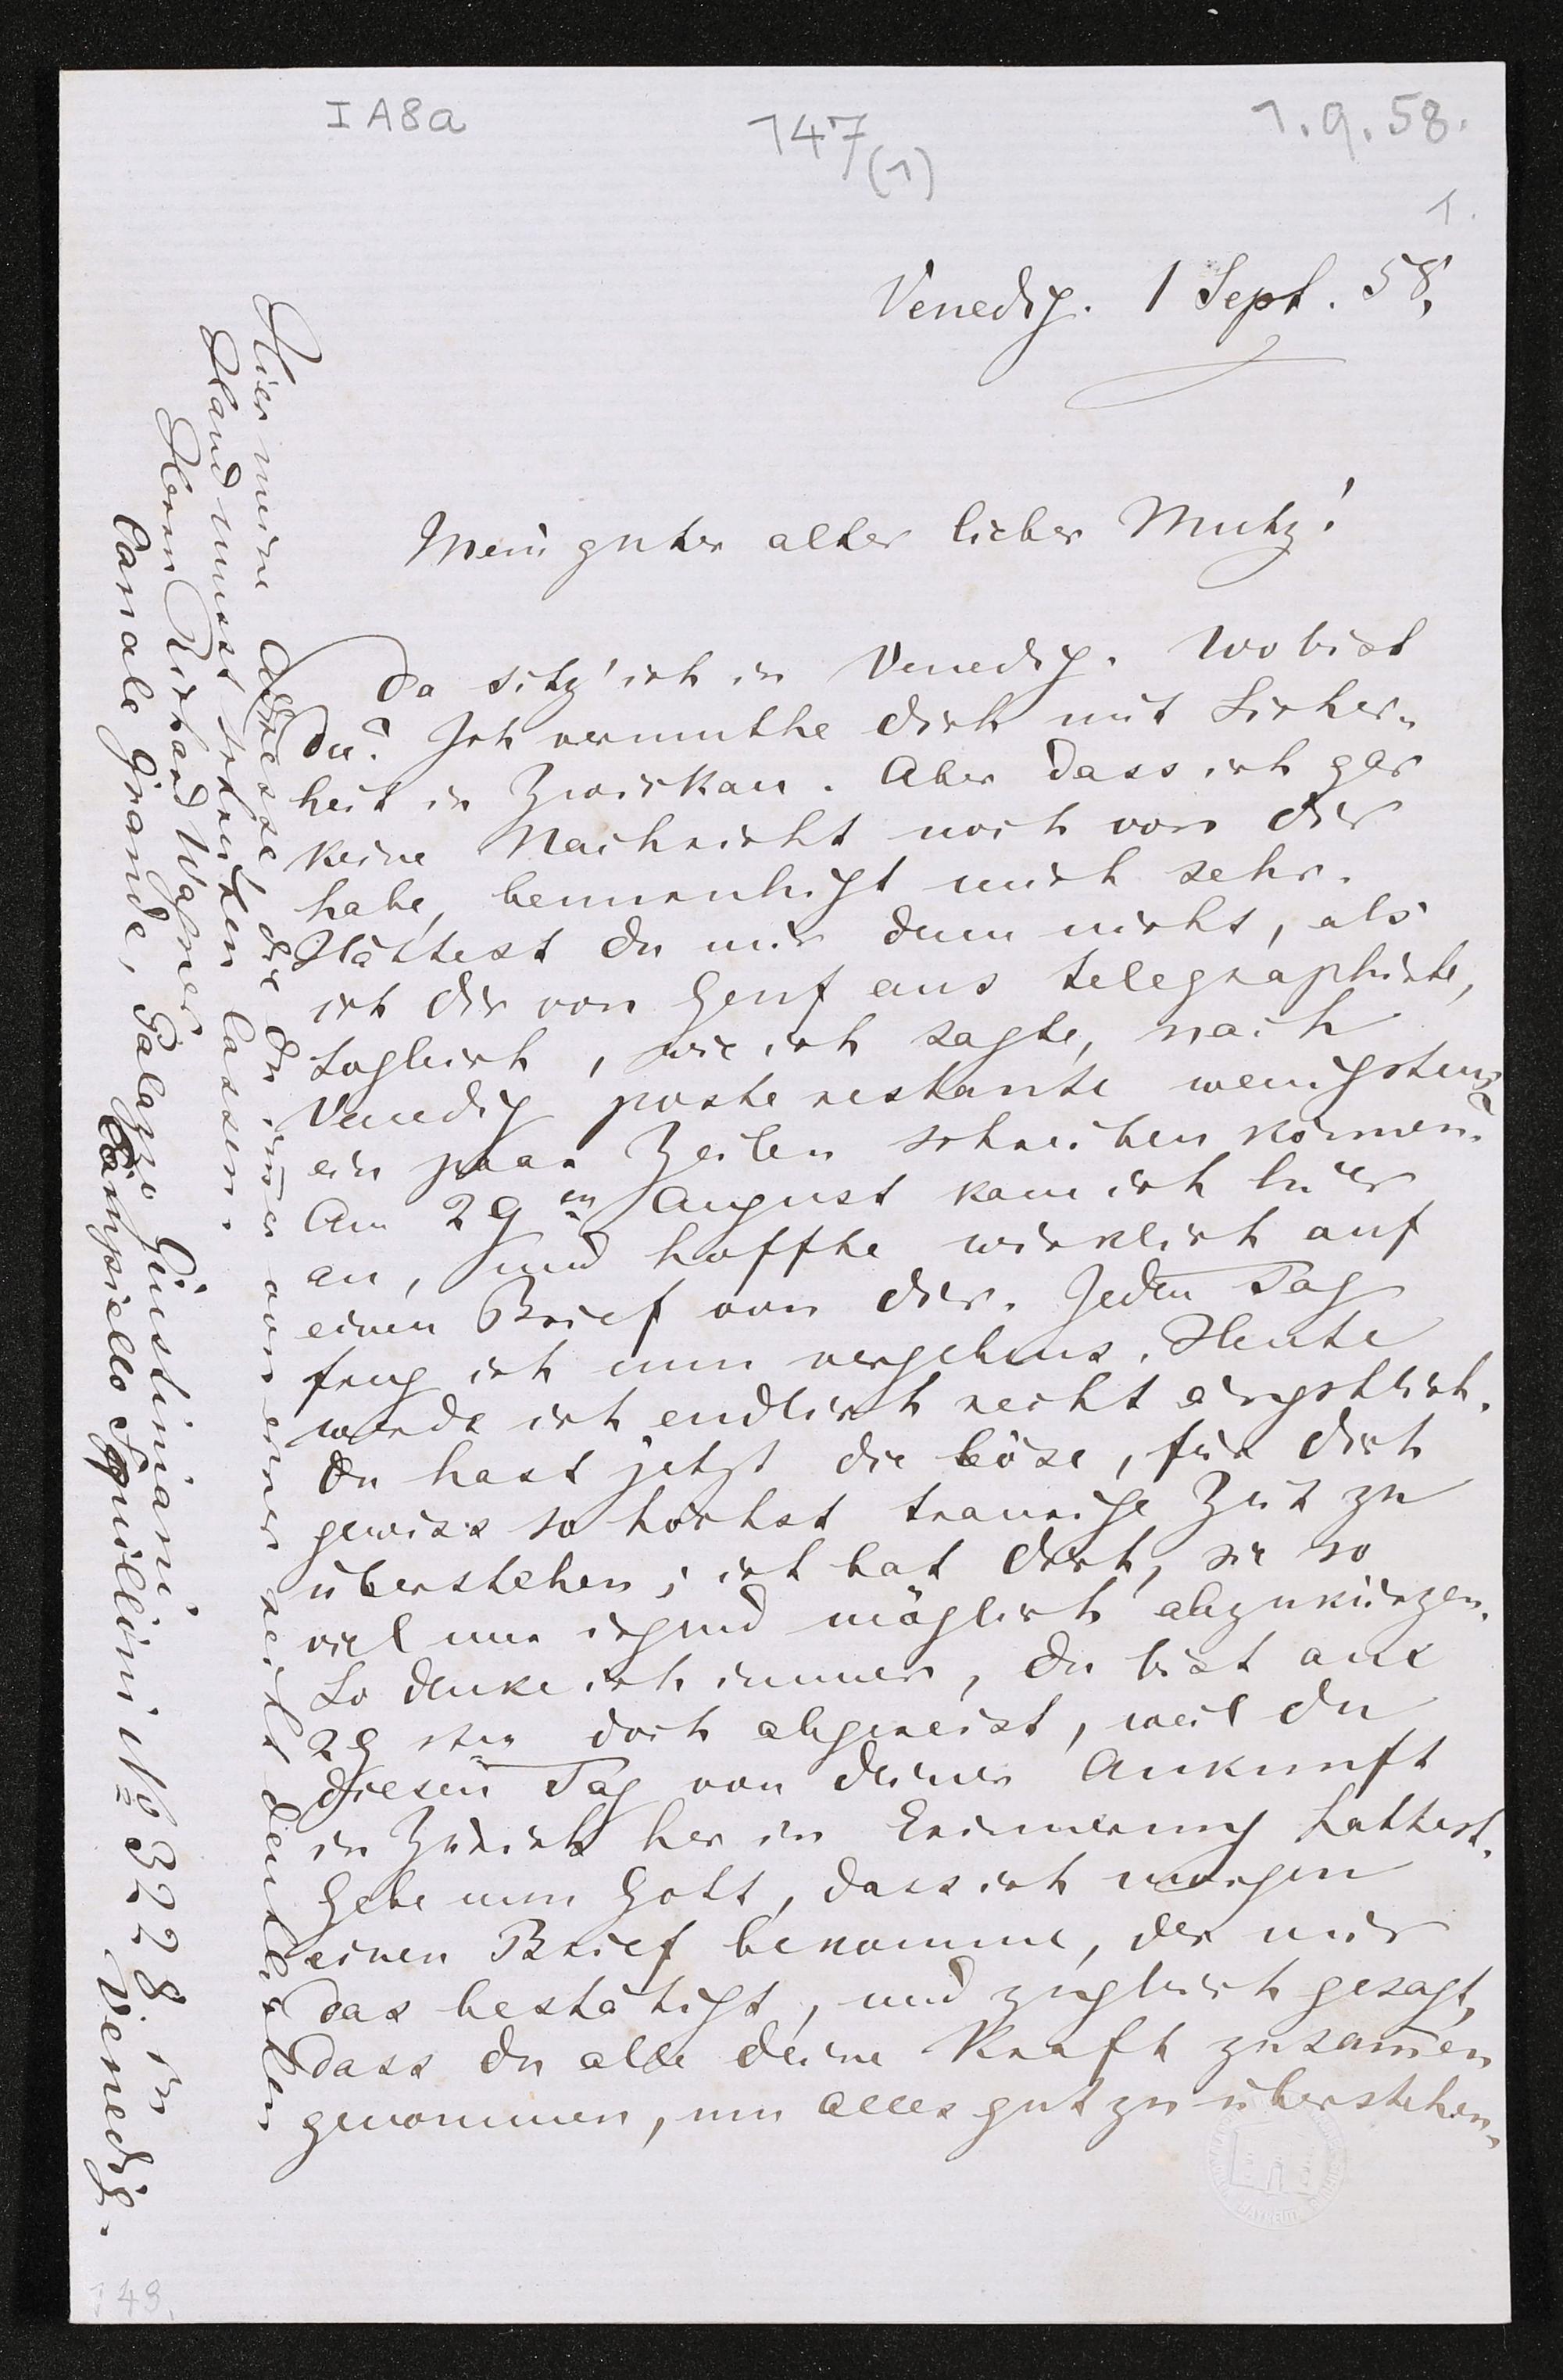 I A8a
147
(1)
1.9.58.
1.
Venedig. 1 Sept. 58.
Mein guter alter lieber Mutz!
Da sitz' ich in Venedig. Wo bist
du? Ich vermuthe dich mit Sicher-
heit in Zwickau. Aber dass ich gar
keine Nachricht noch von dir
habe, beunruhigt mich sehr.
Hättest du mir denn nicht, als
ich dir von Genf aus telegraphirte,
sogleich, wie ich sagte, nach
Venedig poste restante wenigstens
ein paar Zeilen schreiben können?
Am 29en August kam ich hier
an, und hoffte wirklich auf
einen Brief von dir. Jeden Tag
frug ich nun vergebens. Heute
werde ich endlich recht ängstlich.
Du hast jetzt die böse, für dich
gewiss so höchst traurige Zeit zu
überstehen; ich bat dich, sie so
viel nur irgend möglich abzukürzen.
So denke ich immer, du bist am
29sten doch abgereist, weil du
diesen Tag von deiner Ankunft
in Zürich her in Erinnerung hattest.
Gebe nun Gott, dass ich morgen
einen Brief bekomme, der mir
das bestätigt, und zugleich gesagt,
dass du alle deine Kraft zusam̄en
genommen, um alles gut zu überstehen.
Hier meine Adresse, die du im̄er von einer recht deutlichen
Hand musst schreiben lassen.
Herrn Richard Wagner
Canale Grande, Palazzo Giustiniani.
Campiello Squillini No 3228 in
Venedig.
149.